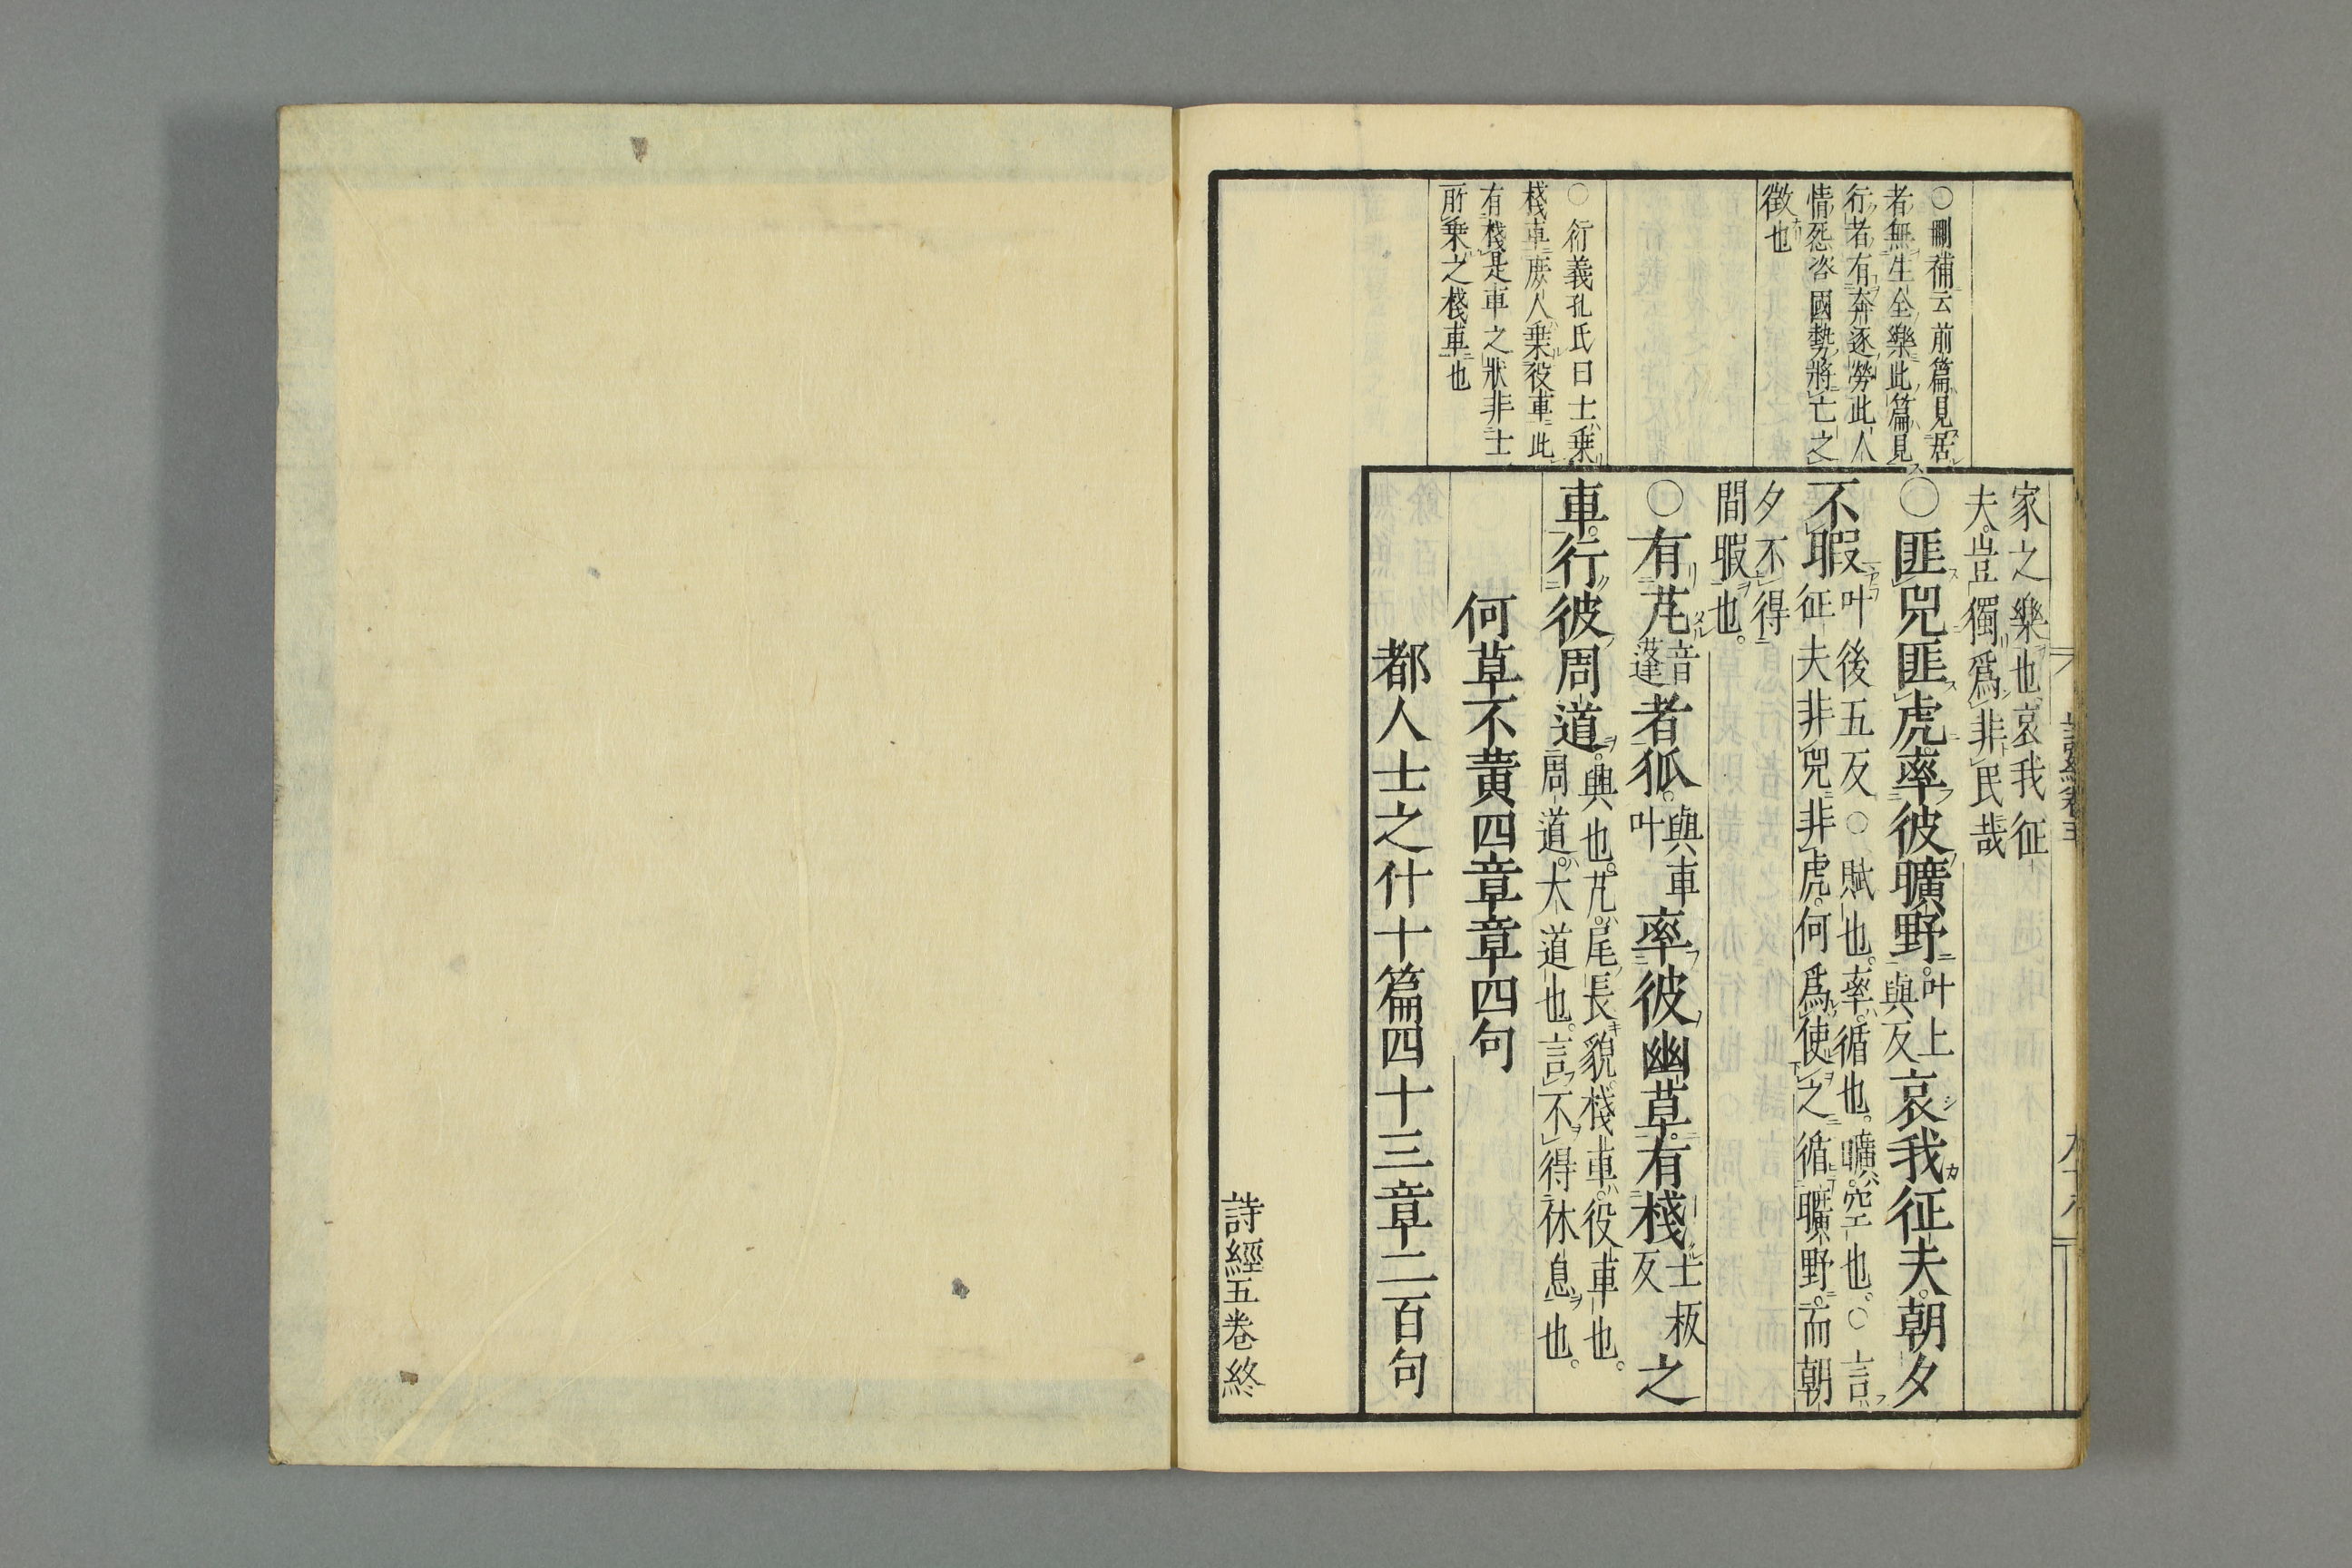 ○刪補云前篇見居
者無生全樂此篇見
行者有奔逐勞此人
情怨咨國勢將亡之
徵也
○衍義孔氏曰士乗
棧車庶人乗役車此
有棧是車之狀非士
所乗之棧車也
家之樂也。哀我征
夫。豈獨爲非民哉
○匪兕匪虎率彼曠野。叶上與反哀我征夫。朝夕
不暇叶後五反○賦也。率。循也。曠。空也。○言
征夫非兕非虎。何爲使之循曠野。而朝
夕不得
間暇也。
○有芃音蓬者狐。與車叶率彼幽草。有棧士板反之
車。行彼周道。興也。芃。尾長貌。棧車。役車也。
周道。大道也。言不得休息也。
何草不黄四章章四句
都人士之什十篇四十三章二百句
詩經五卷終